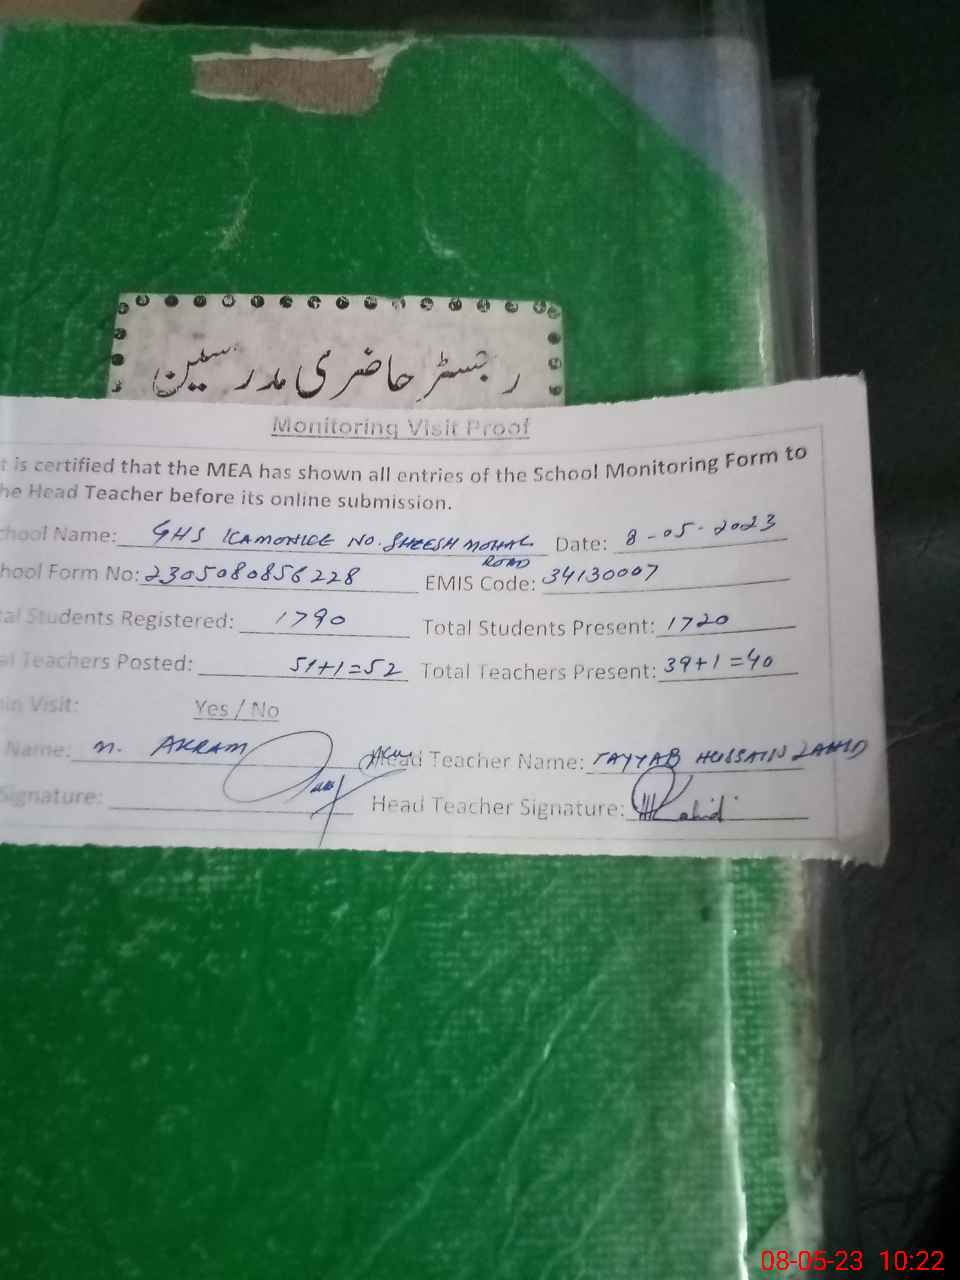 رجسٹر حاضری مدرسین
Monitoring Visit Proof
t is certified that the MEA has shown all entries of the School Monitoring Form to
he Head Teacher before its online submission.
chool Name: GHS KAMONKE NO. SHEESH MOHAL ROAD Date: 8-05-2023
hool Form No: 2305080856228 EMIS Code: 34130007
tal Students Registered: 1790 Total Students Present: 1720
al Teachers Posted: 51+1=52 Total Teachers Present: 39+1=40
in Visit: Yes / No
Name: M. AKRAM Head Teacher Name: TAYYAB HUSSAIN ZAHID
Signature: Head Teacher Signature: Zahid
08-05-23 10:22